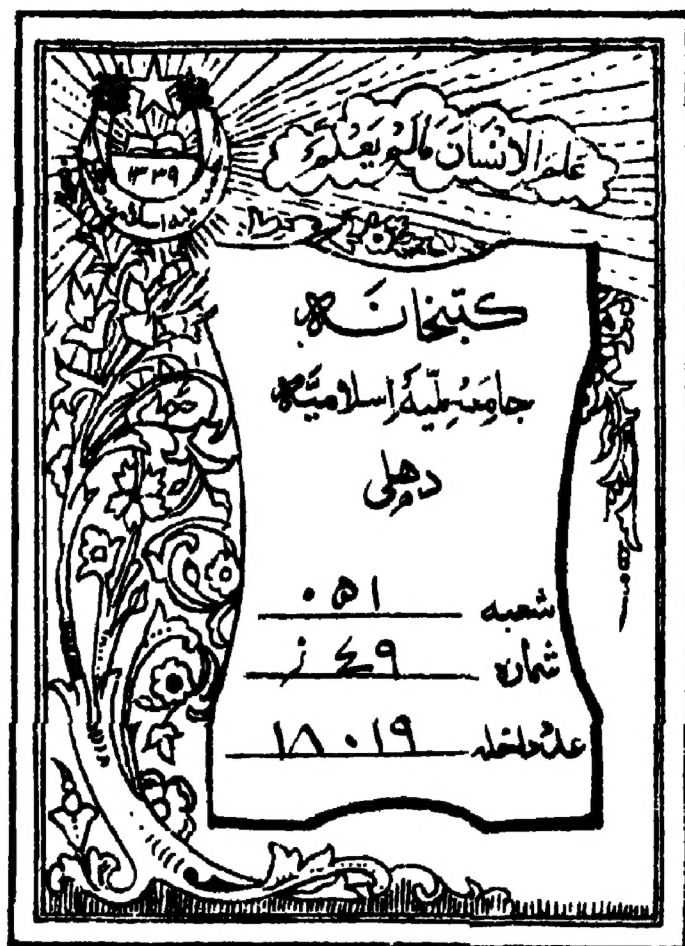 علم الانسان مالم يعلم
۱۳۳۹
کتبخانہ
جامعہ ملیہ اسلامیہ
دھلی
شعبہ ۰۵۱
شمارہ
عدد داخلہ ۱۸۰۱۹